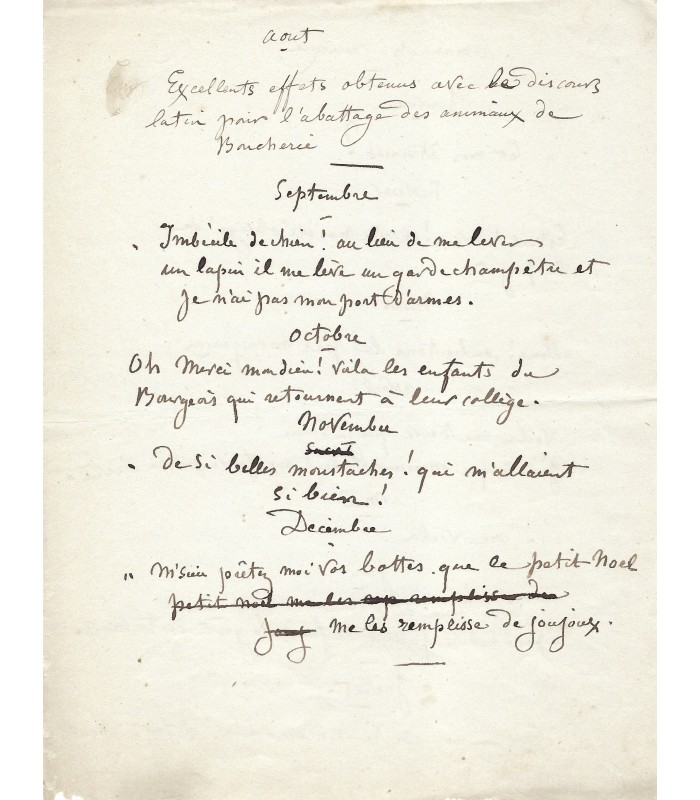 aout
Excellents effets obtenus avec le discours
latin pour l'abattage des animaux de
Boucherie
Septembre
" Imbécile de chien ! au lieu de me lever
un lapin il me lève un garde champêtre et
je n'ai pas mon port d'armes.
Octobre
Oh Merci mon dieu ! Voila les enfants du
Bourgeois qui retournent à leur collège.
Novembre
" De si belles moustaches ! qui m'allaient
si bien !
Décembre
" M'sieu prêtez moi vos bottes que le petit Noel
petit noel me les remplisse de
me les remplisse de joujoux.